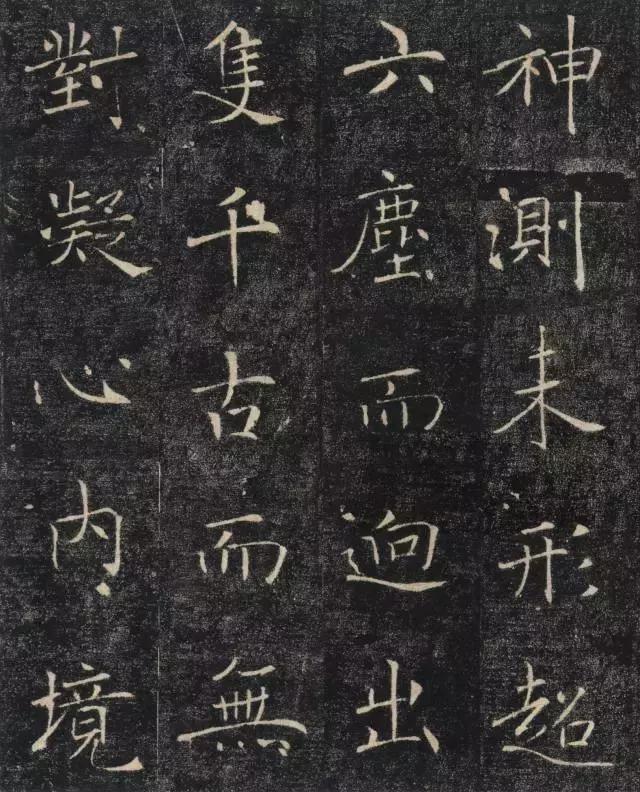 神測未形超
六塵而逈出
隻千古而無
對凝心内境